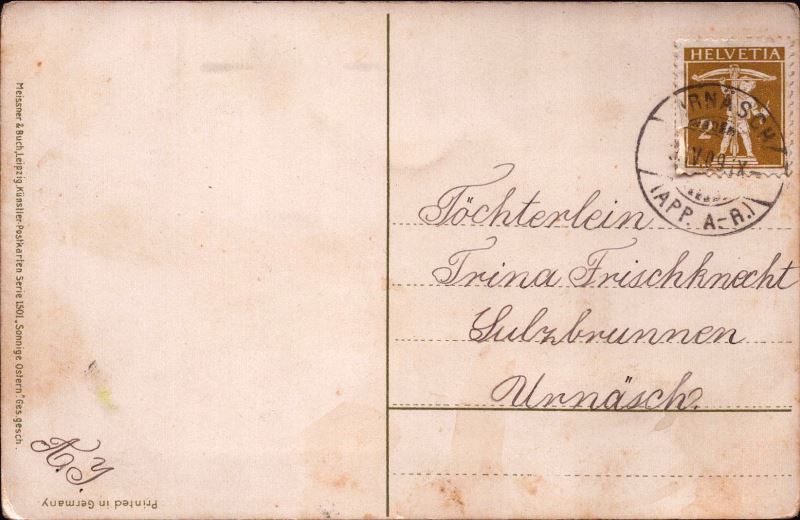 HELVETIA
2
URNÄSCH
(APP. A-R.)
Töchterlein
Trina Frischknecht
Sulzbrunnen
Urnäsch.
Meissner & Buch, Leipzig, Künstler-Postkarten Serie 1501 „Sonnige Ostern" Ges. gesch.
Printed in Germany.